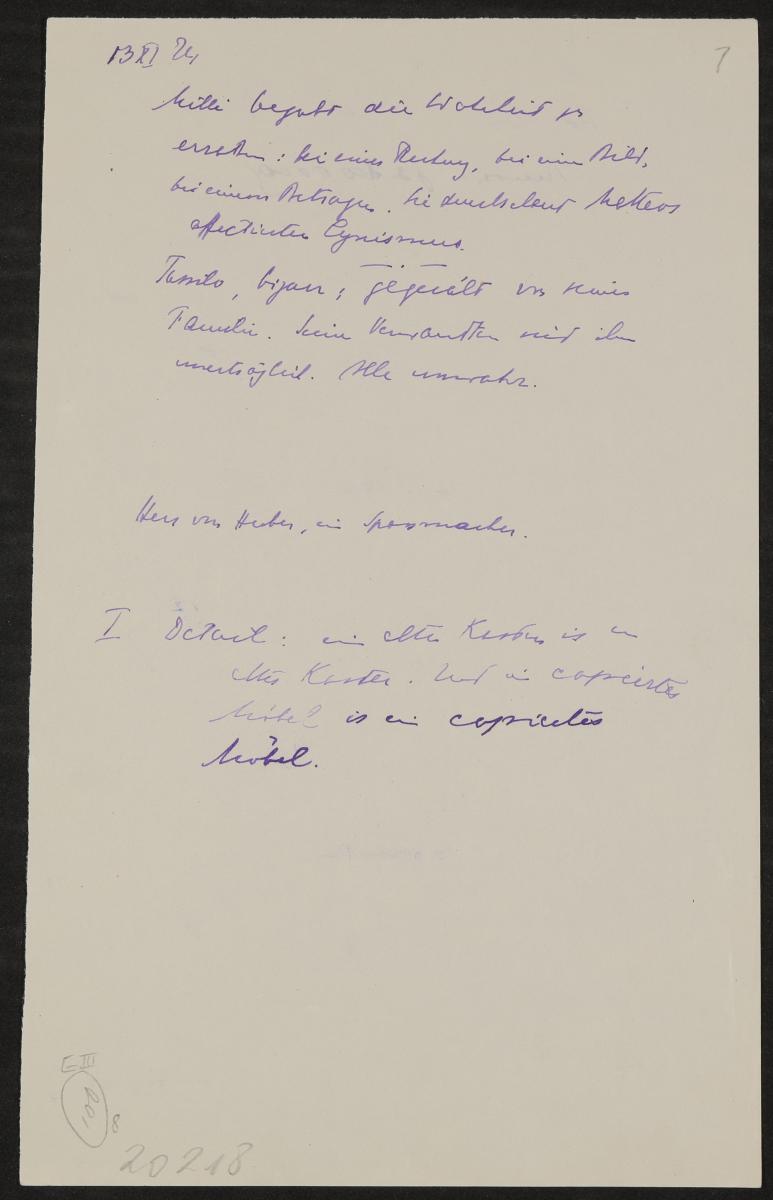 13 XI 24
7
Milli begabt die Wahrheit zu
errathen: bei einer Dichtung, bei einem Bild,
bei einem Betragen. Sie durchschaut Matteos
affectierten Cynismus.
Tassilo, bizarr; gequält von seiner
Familie. Seine Verwandten sind ihm
unerträglich. Alle unwahr.
Herr von Huber, ein Spassmacher.
I Detail: ein alter Kasten is ein
alter Kasten. Und ein copiertes
Möbel is ein copiertes
Möbel.
E III
201
8
20218